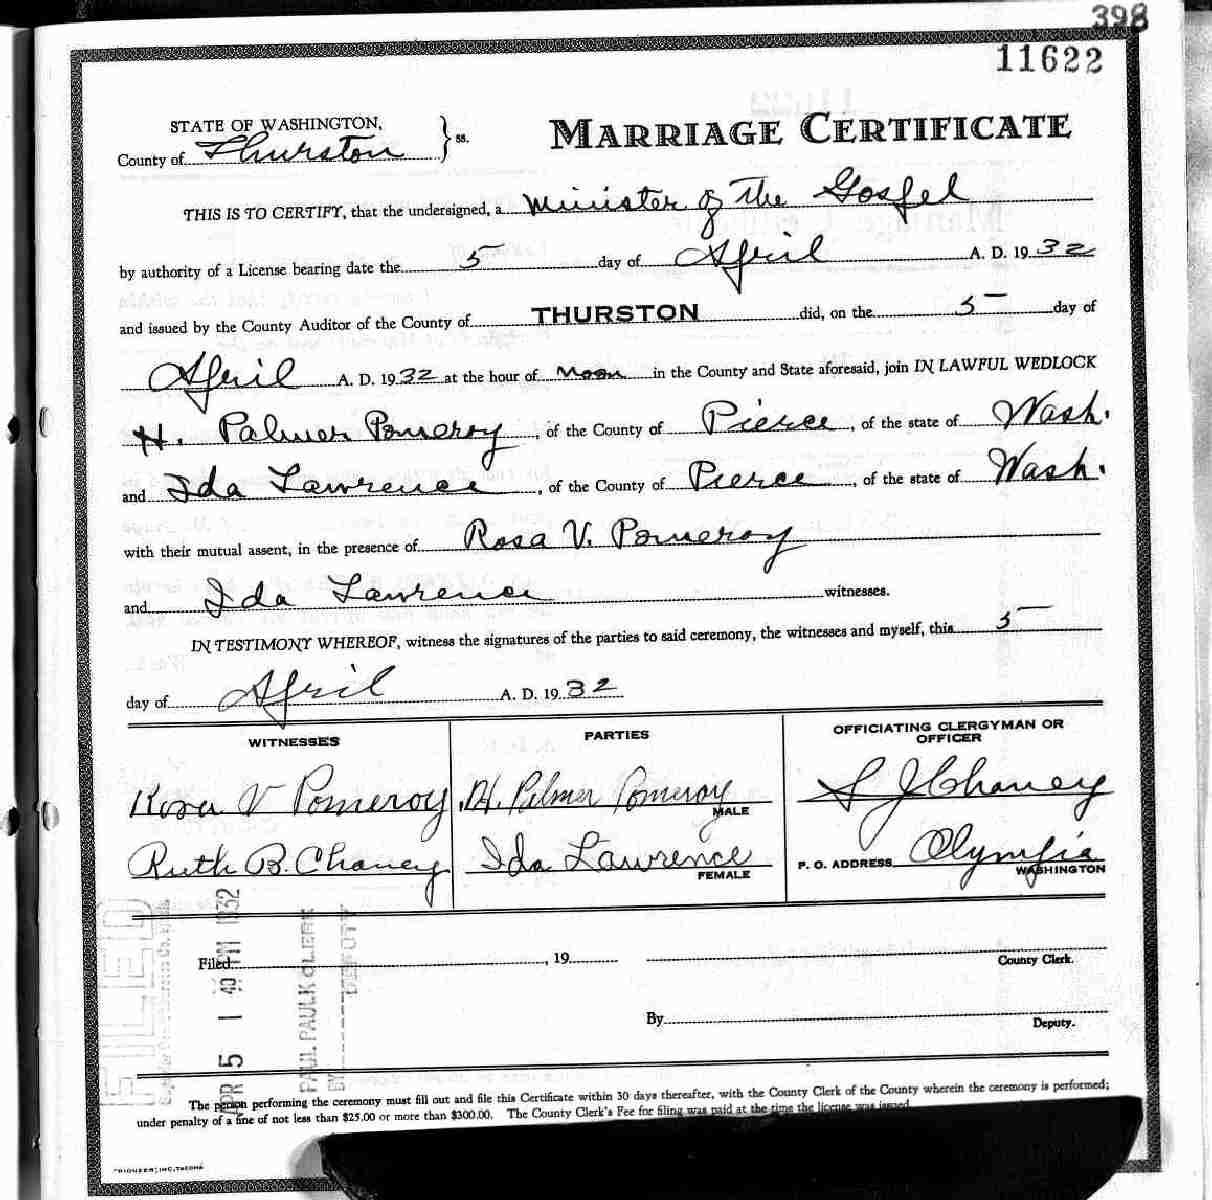 398
11622
STATE OF WASHINGTON,
County of Thurston } ss.
MARRIAGE CERTIFICATE
THIS IS TO CERTIFY, that the undersigned, a Minister of The Gospel
by authority of a License bearing date the 5 day of April A. D. 19 32
and issued by the County Auditor of the County of THURSTON did, on the 5 day of
April A. D. 19 32 at the hour of Noon in the County and State aforesaid, join IN LAWFUL WEDLOCK
H. Palmer Pomeroy, of the County of Pierce, of the state of Wash.
and Ida Lawrence, of the County of Pierce, of the state of Wash.
with their mutual assent, in the presence of Rosa V. Pomeroy
and Ida Lawrence witnesses.
IN TESTIMONY WHEREOF, witness the signatures of the parties to said ceremony, the witnesses and myself, this 5
day of April A. D. 19 32
WITNESSES
Rosa V Pomeroy
Ruth B. Chaney
PARTIES
H. Palmer Pomeroy
MALE
Ida Lawrence
FEMALE
OFFICIATING CLERGYMAN OR
OFFICER
S J Chaney
P. O. ADDRESS Olympia
WASHINGTON
FILED
APR 5 1 40 PM 1932
PAUL PAULK CLERK
BY DEPUTY
Filed , 19
County Clerk.
By
Deputy.
The person performing the ceremony must fill out and file this Certificate within 30 days thereafter, with the County Clerk of the County wherein the ceremony is performed;
under penalty of a fine of not less than $25.00 or more than $300.00. The County Clerk's Fee for filing was paid at the time the license was issued
"PIONEER", INC., TACOMA